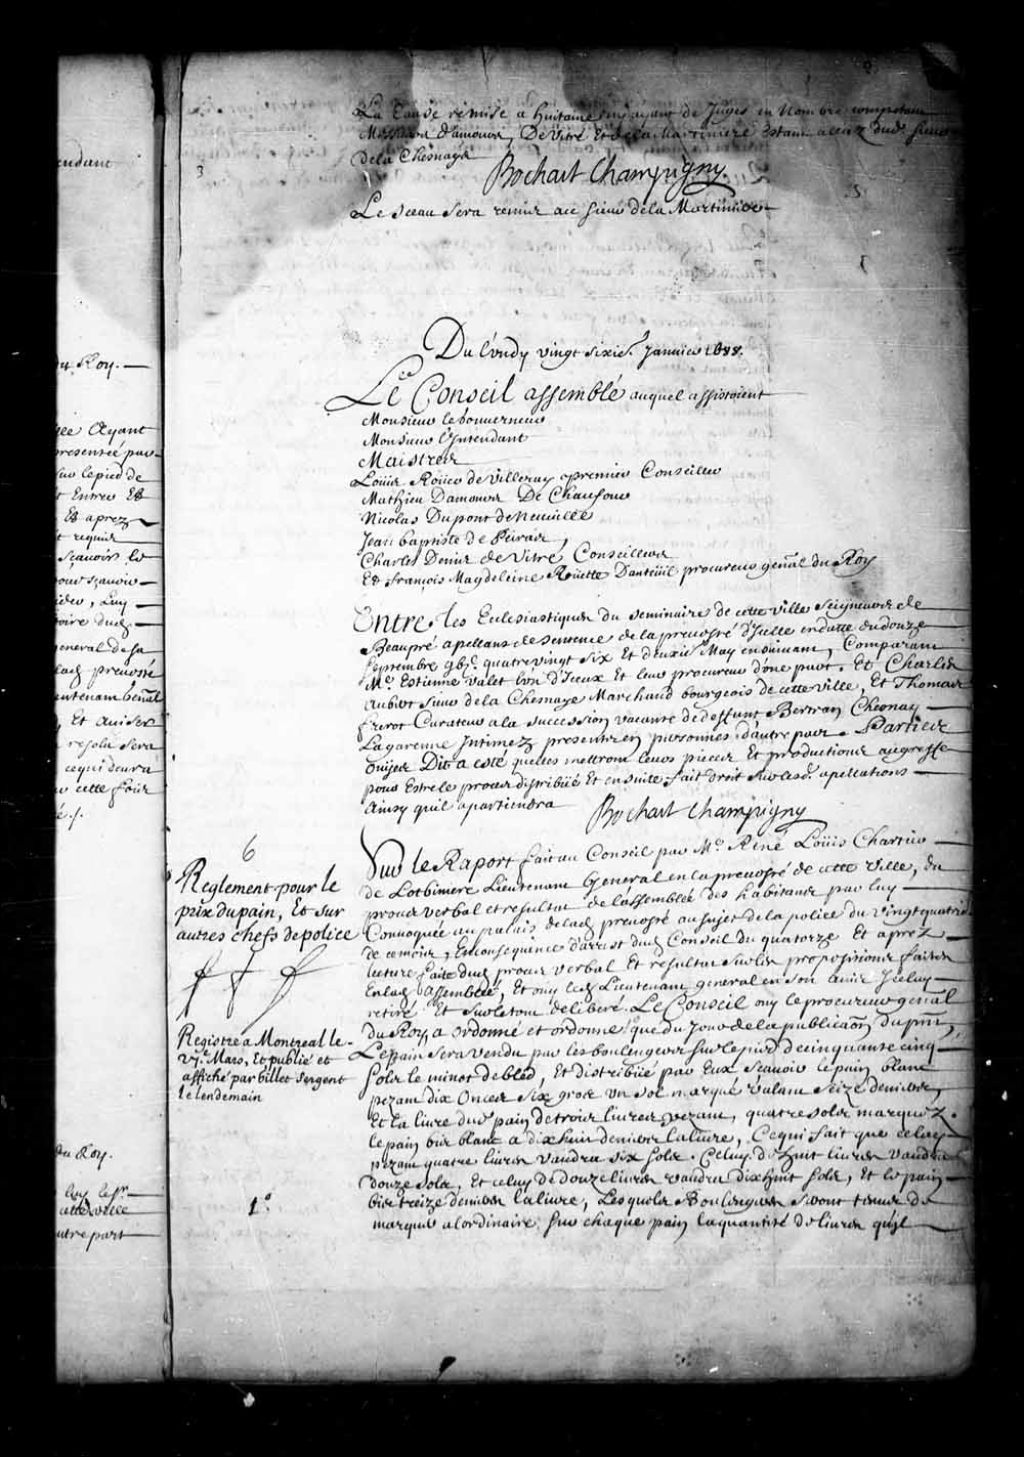 La Cause remise a huitaine ny ayant de Juges en Nombre competam
Messieurs Damours, De Vitré Et de la Martiniere Estans alliez dud. sieur
de la Chesnaye
Bochart Champigny
Le sceau sera remis au sieur de la Martiniere
Du Lundy vingt sixie. Janvier 1688.
Le Conseil assemblé auquel assistoient
Monsieur le Gouverneur
Monsieur l'Intendant
Maistres
Louis Roüer de Villeray premier Conseiller
Mathieu Damours De Chaufour
Nicolas Dupont de Neuville
Jean baptiste de Peiras,
Charles Denis de Vitré Conseillers
Et François Magdeleine Rüette Dauteüil procureur genāl du Roy
Entre les Eclesiastiques du seminaire de cette ville seigneurs de
Beaupré apellans de sentence de la prevosté d'Icelle en datte du douze
septembre gbic. quatre vingt six Et deuxie. May ensuivant, Comparans
Me. Estienne Valet l'un d'Iceux et leur procureur d'une part. Et Charles
Aubert sieur de la Chesnaye Marchand bourgeois de cette ville, Et Thomas
frerot Curateur a la succession vacante de deffunt Bertran Chesnay
Lagarenne Intimez presents en personnes d'autre part. Parties
ouïes Dit a esté quelles mettront leurs pieces et productions au greffe
pour Estre le proces distribüé Et ensuite fait droit sur lesd. apellations
Ainsy quil apartiendra
Bochart Champigny
6
Reglement pour le
prix du pain, Et sur
autres chefs de police
Registré a Montreal le
vje. Mars, Et publié et
affiché par billet sergent
le lendemain
1o.
Sur le Raport fait au Conseil par Me. René Loüis Chartier
de Lotbiniere Lieutenant General en la prevosté de cette Ville, du
proces verbal et resultat de l'assemblée des habitans par luy
Convoquée au palais de lad. prevosté au sujet de la police du vingt quatrie.
de ce mois, En consequence d'arrest dud. Conseil du quatorze Et aprez
lecture faite dud. proces verbal Et resultat sur les propositions faites
En lad. assemblée, Et ouy led. Lieutenant general en son avis Iceluy
retiré Et sur le tout deliberé. Le Conseil ouy le procureur genāl
du Roy, a ordonné et ordonne que du Jour de la publicaōn du pñt,
Le pain sera vendu par les boulengers sur le pied de cinquante cinq
sols le minot de bled, Et distribüé par Eux sçavoir le pain blanc
pezant dix Onces six gros un sol marqué valant seize deniers,
Et la livre dud. pain de trois livres pezant, quatre sols marquez.
le pain bis blanc a dix huit deniers la livre, Ce qui fait que celuy
pezant quatre livres vaudra six sols. Celuy de huit livres vaudra
douze sols, Et celuy de douze livres vaudra dix huit sols, Et le pain
bis treize deniers la livre, Lesquels Boulengers seront tenus de
marquer a l'ordinaire sur chaque pain la quantité de livres qu'il
endant
du Roy.
Ayant
presentée par
sur le pied de
Entrer Et
Et aprez
requis
sçavoir le
pour sçavoir
general de sa
prevosté
Et aviser
resolu sera
ce qui devra
cette fois
du Roy.
cette ville
autre part